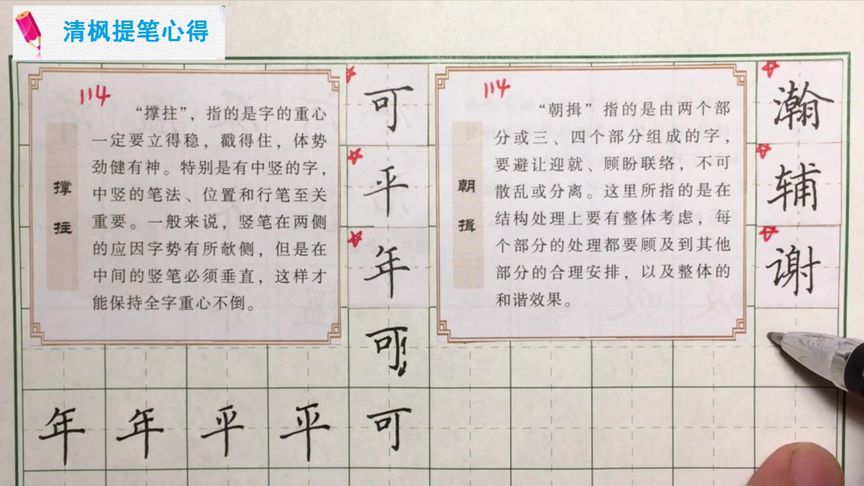 清枫提笔心得
114
撑拄
“撑拄”，指的是字的重心
一定要立得稳，戳得住，体势
劲健有神。特别是有中竖的字，
中竖的笔法、位置和行笔至关
重要。一般来说，竖笔在两侧
的应因字势有所欹侧，但是在
中间的竖笔必须垂直，这样才
能保持全字重心不倒。
可
平
年
可
114
朝揖
“朝揖”指的是由两个部
分或三、四个部分组成的字，
要避让迎就、顾盼联络，不可
散乱或分离。这里所指的是在
结构处理上要有整体考虑，每
个部分的处理都要顾及到其他
部分的合理安排，以及整体的
和谐效果。
瀚
辅
谢
年年平平可